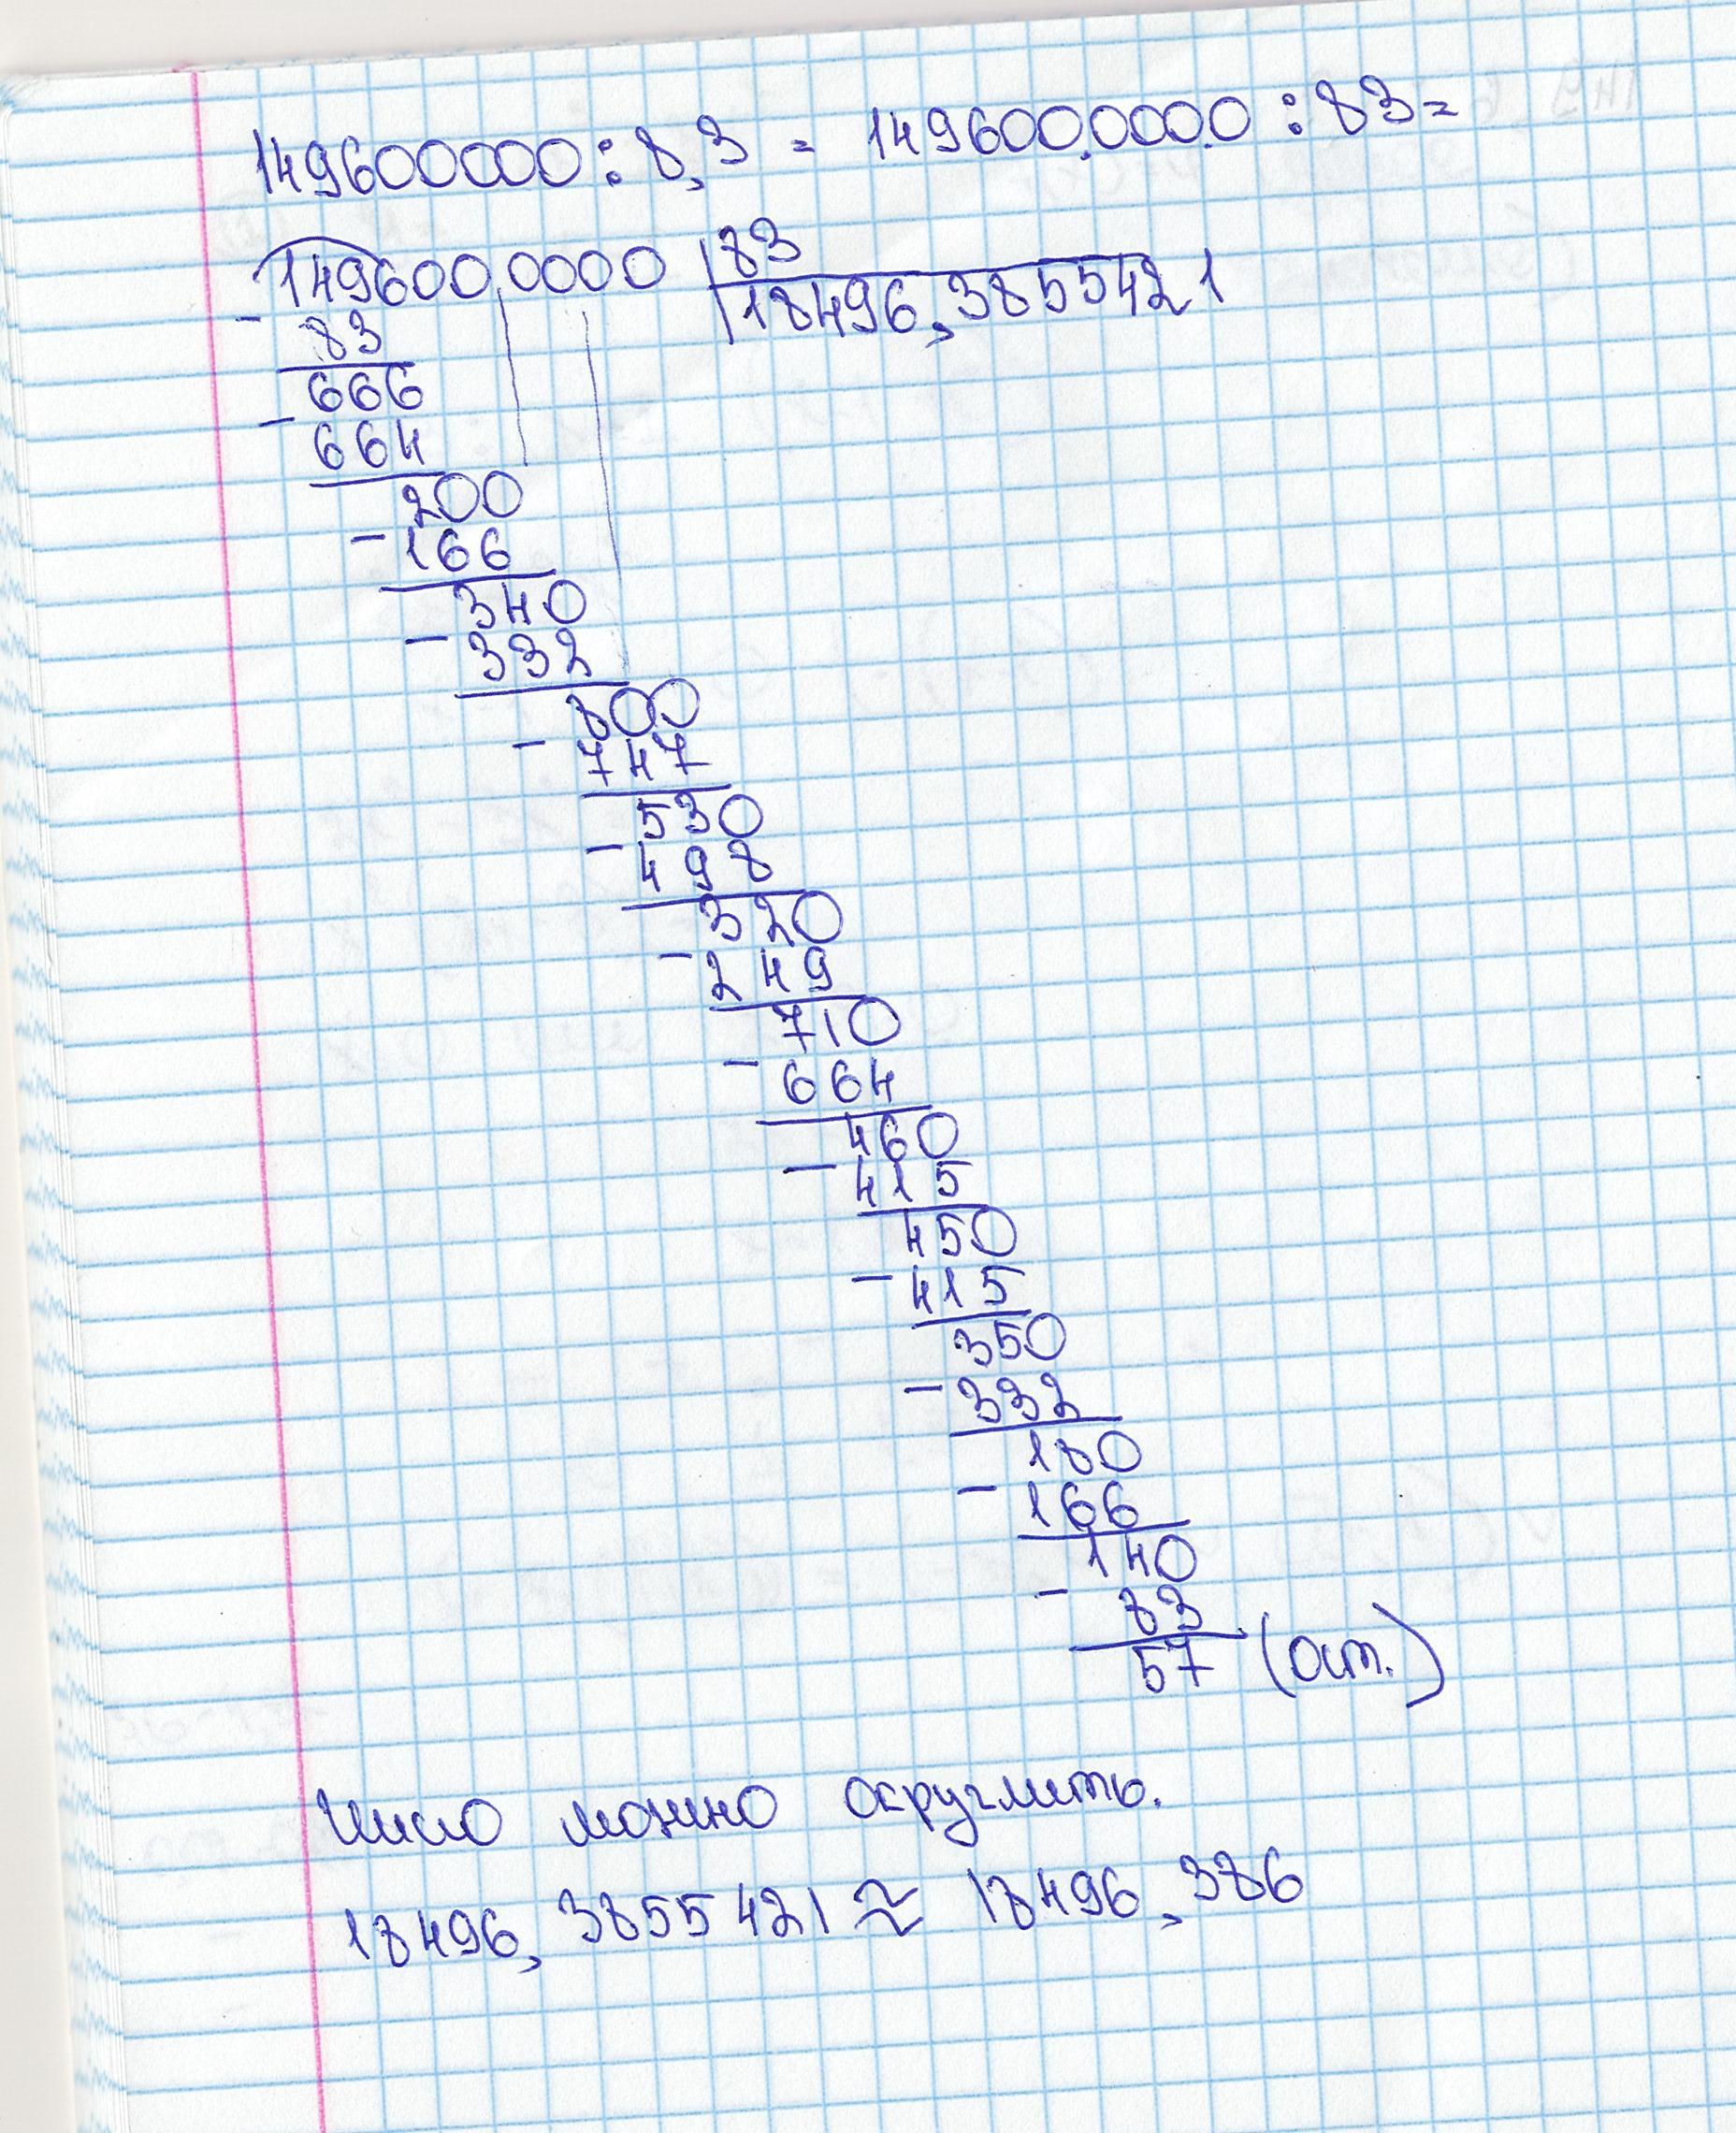 149600000:8,3 = 149600.000.0:83=
1496000000 83
- 83 18496,3855421
666
- 664
200
- 166
340
- 332
800
- 747
530
- 498
320
- 249
710
- 664
460
- 415
450
- 415
350
- 332
180
- 166
140
- 83
57 (ост.)
Число можно округлить.
18496,3855421 ≈ 18496,386